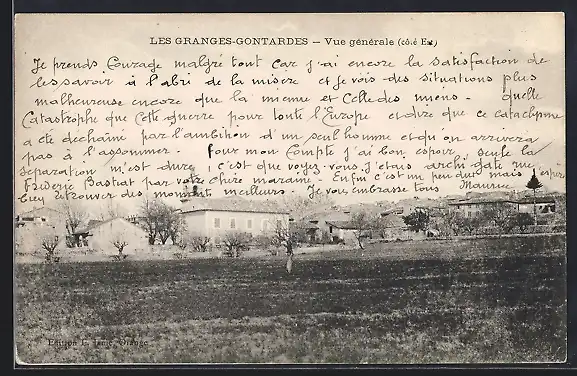 LES GRANGES-GONTARDES – Vue générale (côté Est)
Je prends Courage malgré tout car j'ai encore la satisfaction de
les savoir à l'abri de la misère et je vois des situations plus
malheureuse encore que la mienne et Celle des miens. quelle
Catastrophe que Cette guerre pour toute l'Europe et dire que ce cataclysme
a été dechainé par l'ambition d'un seul homme et qu'on arrivera
pas à l'assommer. Pour mon Compte j'ai bon espoir, seule la
séparation m'est dure, c'est que voyez-vous j'étais archi gâté rue
Frédéric Bastiat par votre chère marraine. Enfin c'est un peu dur mais
bien retrouver des moments meilleurs. Je vous embrasse tous Maurice
Edition Orange